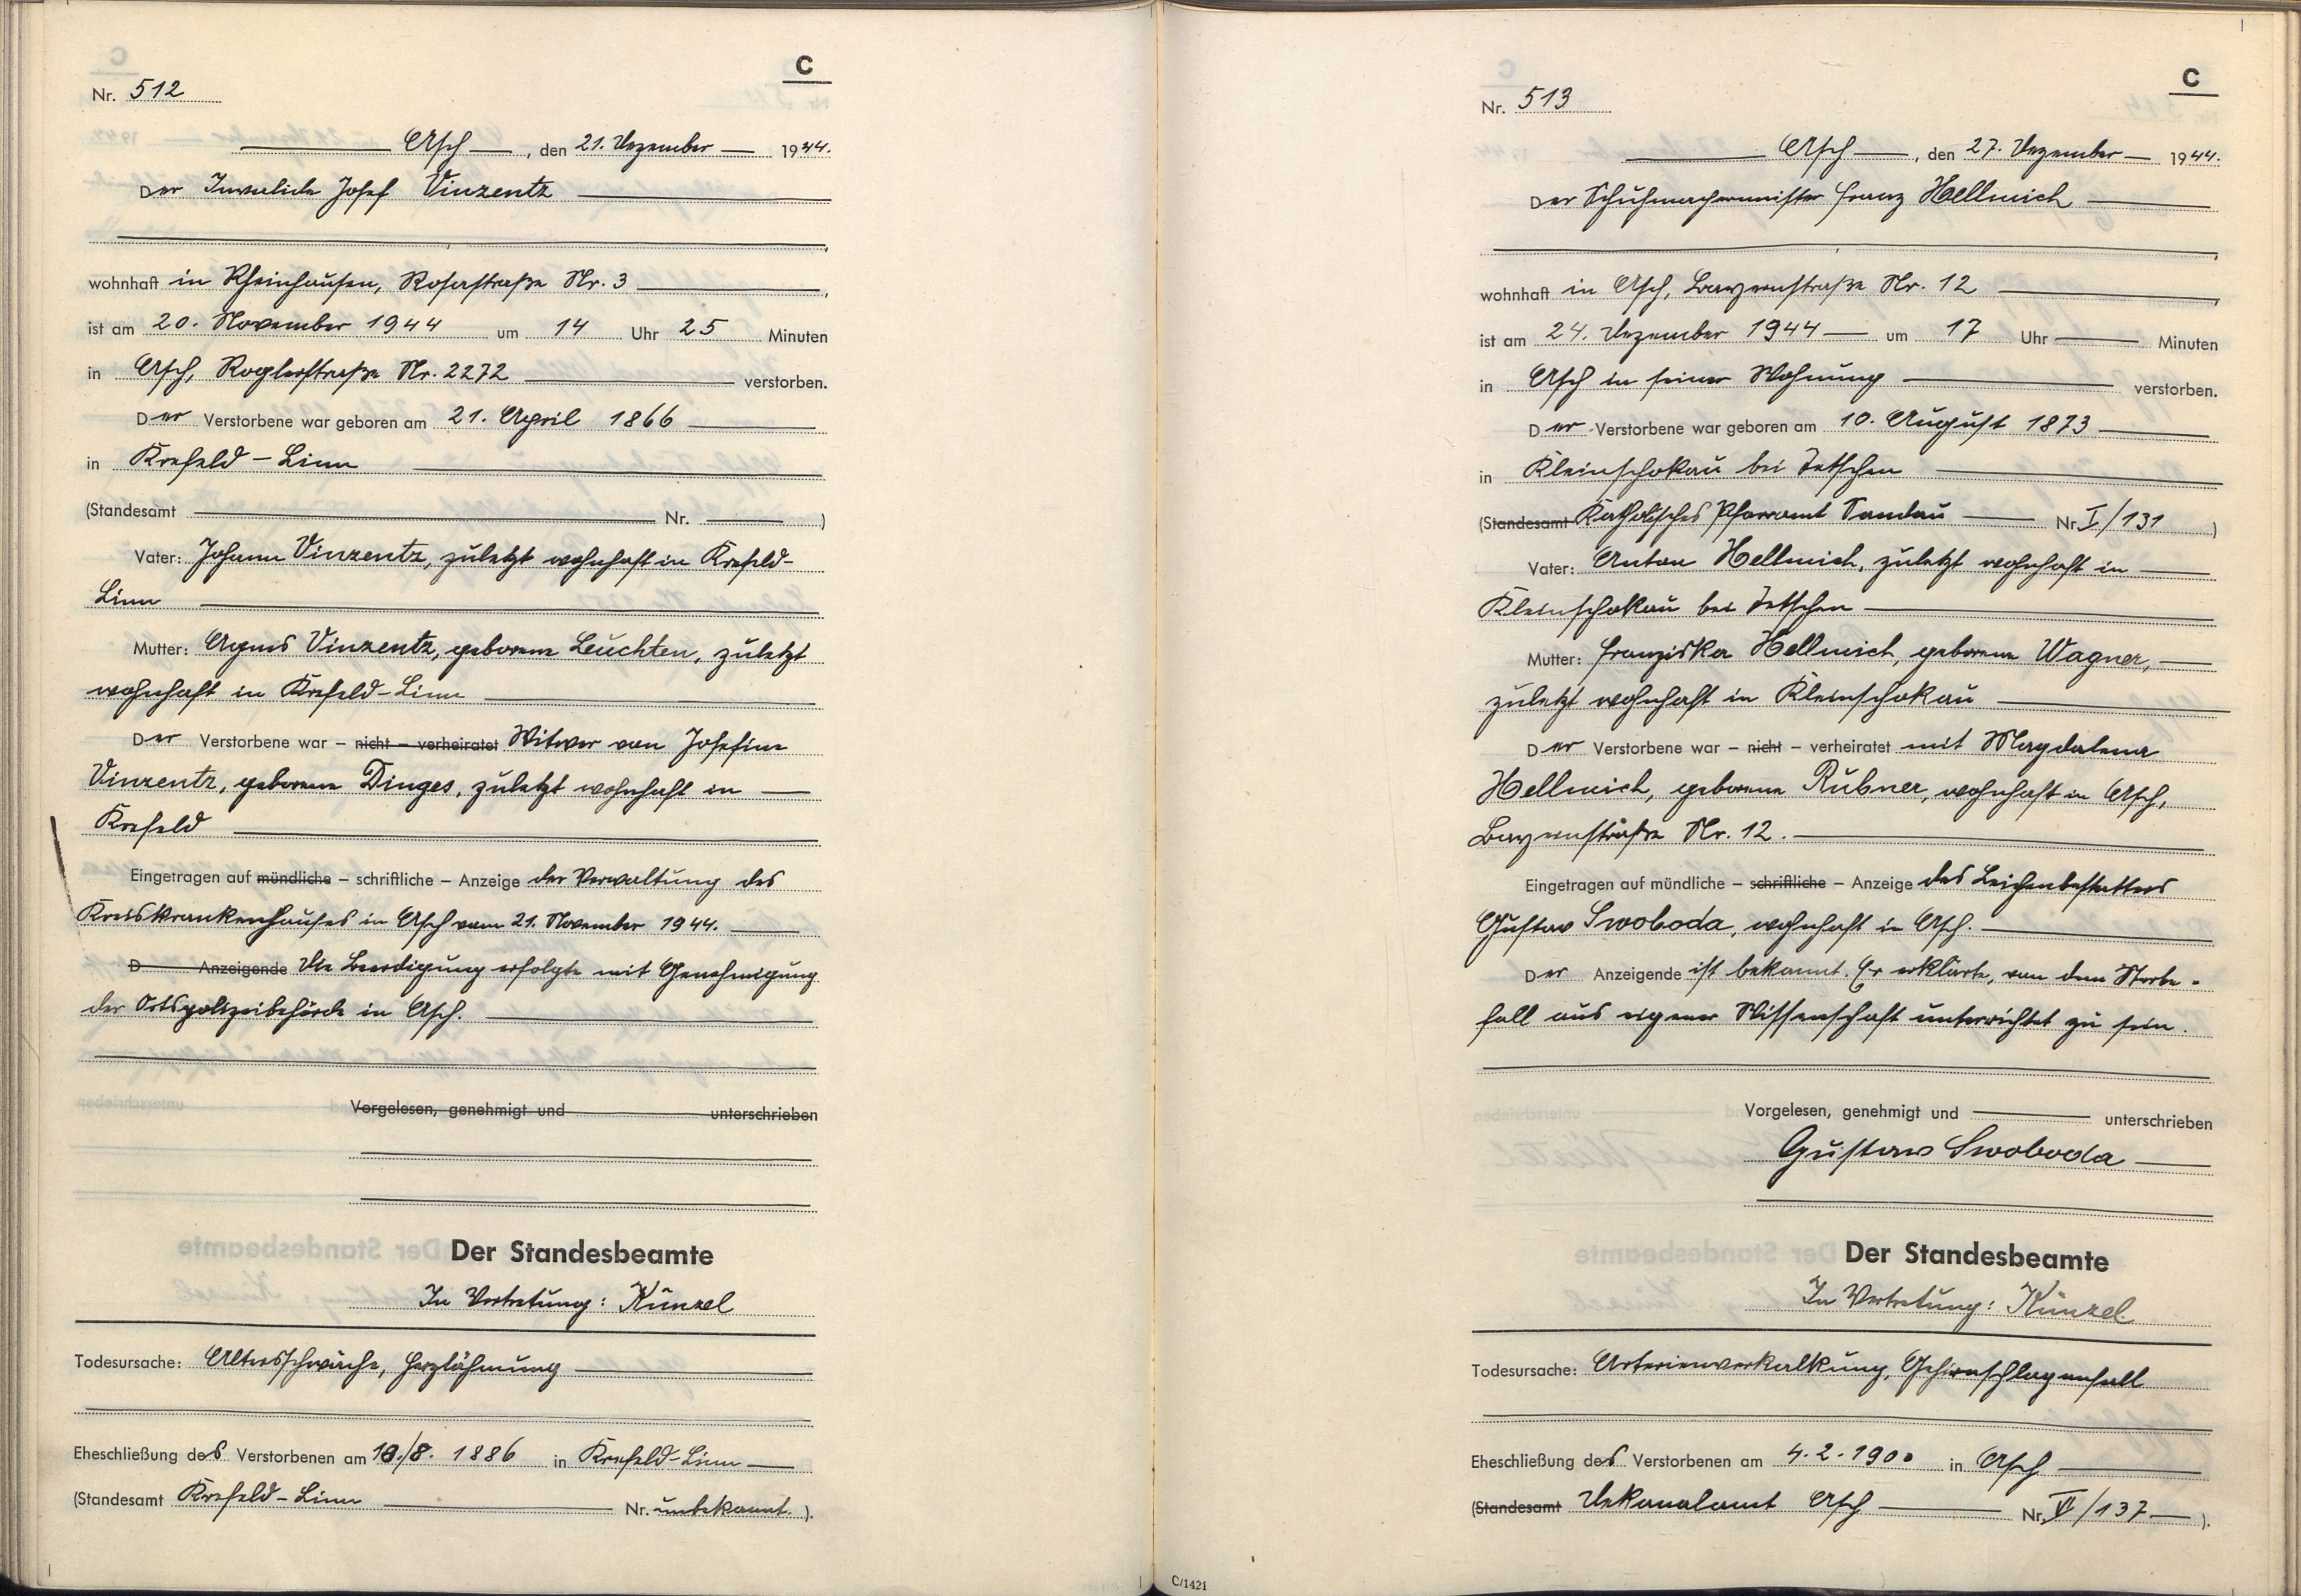 C
Nr. 512
Asch, den 21. Dezember 1944.
Der Invalide Josef Vinzentz
wohnhaft in Rheinhausen, Rosastraße Nr. 3,
ist am 20. November 1944 um 14 Uhr 25 Minuten
in Asch, Roglerstraße Nr. 2272 verstorben.
Der Verstorbene war geboren am 21. April 1866
in Krefeld-Linn
(Standesamt Nr. )
Vater: Johann Vinzentz, zuletzt wohnhaft in Krefeld-
Linn
Mutter: Agnes Vinzentz, geborene Leuchten, zuletzt
wohnhaft in Krefeld-Linn
Der Verstorbene war – nicht – verheiratet Witwer von Josefine
Vinzentz, geborene Dinges, zuletzt wohnhaft in
Krefeld
Eingetragen auf mündliche – schriftliche – Anzeige der Verwaltung des
Kreiskrankenhauses in Asch vom 21. November 1944.
D Anzeigende Die Beerdigung erfolgte mit Genehmigung
der Ortspolizeibehörde in Asch.
Vorgelesen, genehmigt und unterschrieben
Der Standesbeamte
In Vertretung: Künzel
Todesursache: Altersschwäche, Herzlähmung
Eheschließung des Verstorbenen am 18./8. 1886 in Krefeld-Linn
(Standesamt Krefeld-Linn Nr. unbekannt. ).
C
Nr. 513
Asch, den 27. Dezember 1944.
Der Schuhmachermeister Franz Hellmich
wohnhaft in Asch, Bayernstraße Nr. 12
ist am 24. Dezember 1944 um 17 Uhr Minuten
in Asch in seiner Wohnung verstorben.
Der Verstorbene war geboren am 10. August 1873
in Kleinschokau bei Tetschen
(Standesamt Katholisches Pfarramt Sandau Nr. I/131 )
Vater: Anton Hellmich, zuletzt wohnhaft in
Kleinschokau bei Tetschen
Mutter: Franziska Hellmich, geborene Wagner,
zuletzt wohnhaft in Kleinschokau
Der Verstorbene war – nicht – verheiratet mit Magdalena
Hellmich, geborene Rubner, wohnhaft in Asch,
Bayernstraße Nr. 12.
Eingetragen auf mündliche – schriftliche – Anzeige des Leichenbestatters
Gustav Swoboda, wohnhaft in Asch.
Der Anzeigende ist bekannt. Er erklärte, von dem Sterbe-
fall aus eigener Wissenschaft unterrichtet zu sein.
Vorgelesen, genehmigt und unterschrieben
Gustav Swoboda
Der Standesbeamte
In Vertretung: Künzel
Todesursache: Arterienverkalkung, Gehirnschlaganfall
Eheschließung des Verstorbenen am 4.2.1900 in Asch
(Standesamt Dekanalamt Asch Nr. VI/137 ).
C/1421